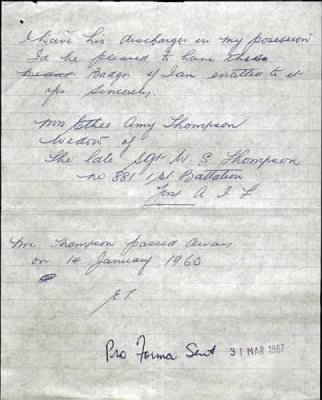 I have his discharges in my possession
I'd be pleased to have these
Badge if I am entitled to it
yrs Sincerely.
Mrs Ethel Amy Thompson
widow of
The late Sgt W. S Thompson
no 881 1st Battalion
First A I F
Mr. Thompson passed away
on 14 January 1960
E.T.
Pro Forma Sent 31 MAR 1967